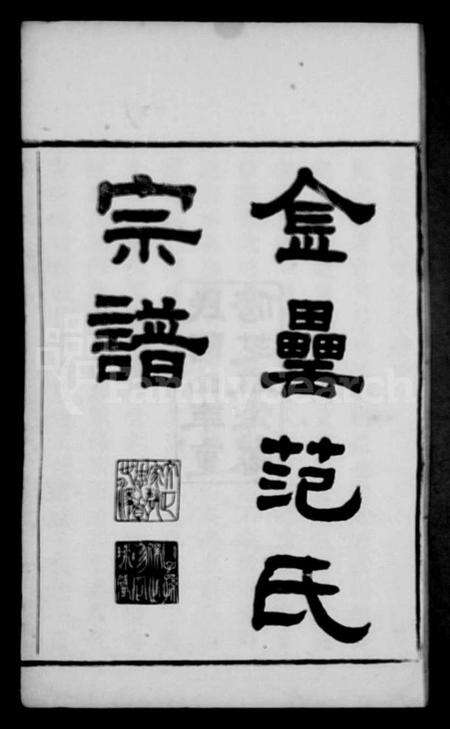 金罍范氏
宗譜
FamilySearch